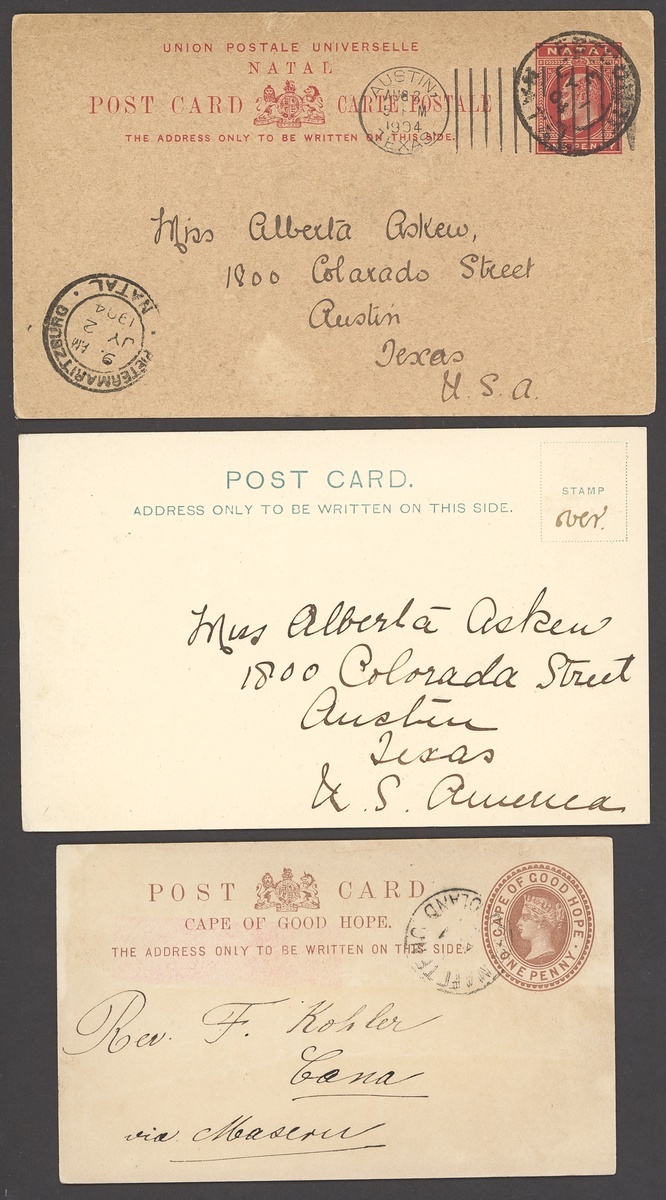 UNION POSTALE UNIVERSELLE
NATAL
POST CARD CARTE POSTALE
THE ADDRESS ONLY TO BE WRITTEN ON THIS SIDE.
AUSTIN,
1904
TEXAS
NATAL
Miss Alberta Askew,
1800 Colarado Street
Austin
Texas
U. S. A.
PIETERMARITZBURG · NATAL ·
9. AM
JY 2
1904
POST CARD.
ADDRESS ONLY TO BE WRITTEN ON THIS SIDE.
STAMP
over.
Miss Alberta Askew
1800 Colorada Street
Austin
Texas
U. S. America
POST CARD
CAPE OF GOOD HOPE.
THE ADDRESS ONLY TO BE WRITTEN ON THIS SIDE.
CAPE OF GOOD HOPE
ONE PENNY
Rev. F. Kohler
Cana
via Maseru